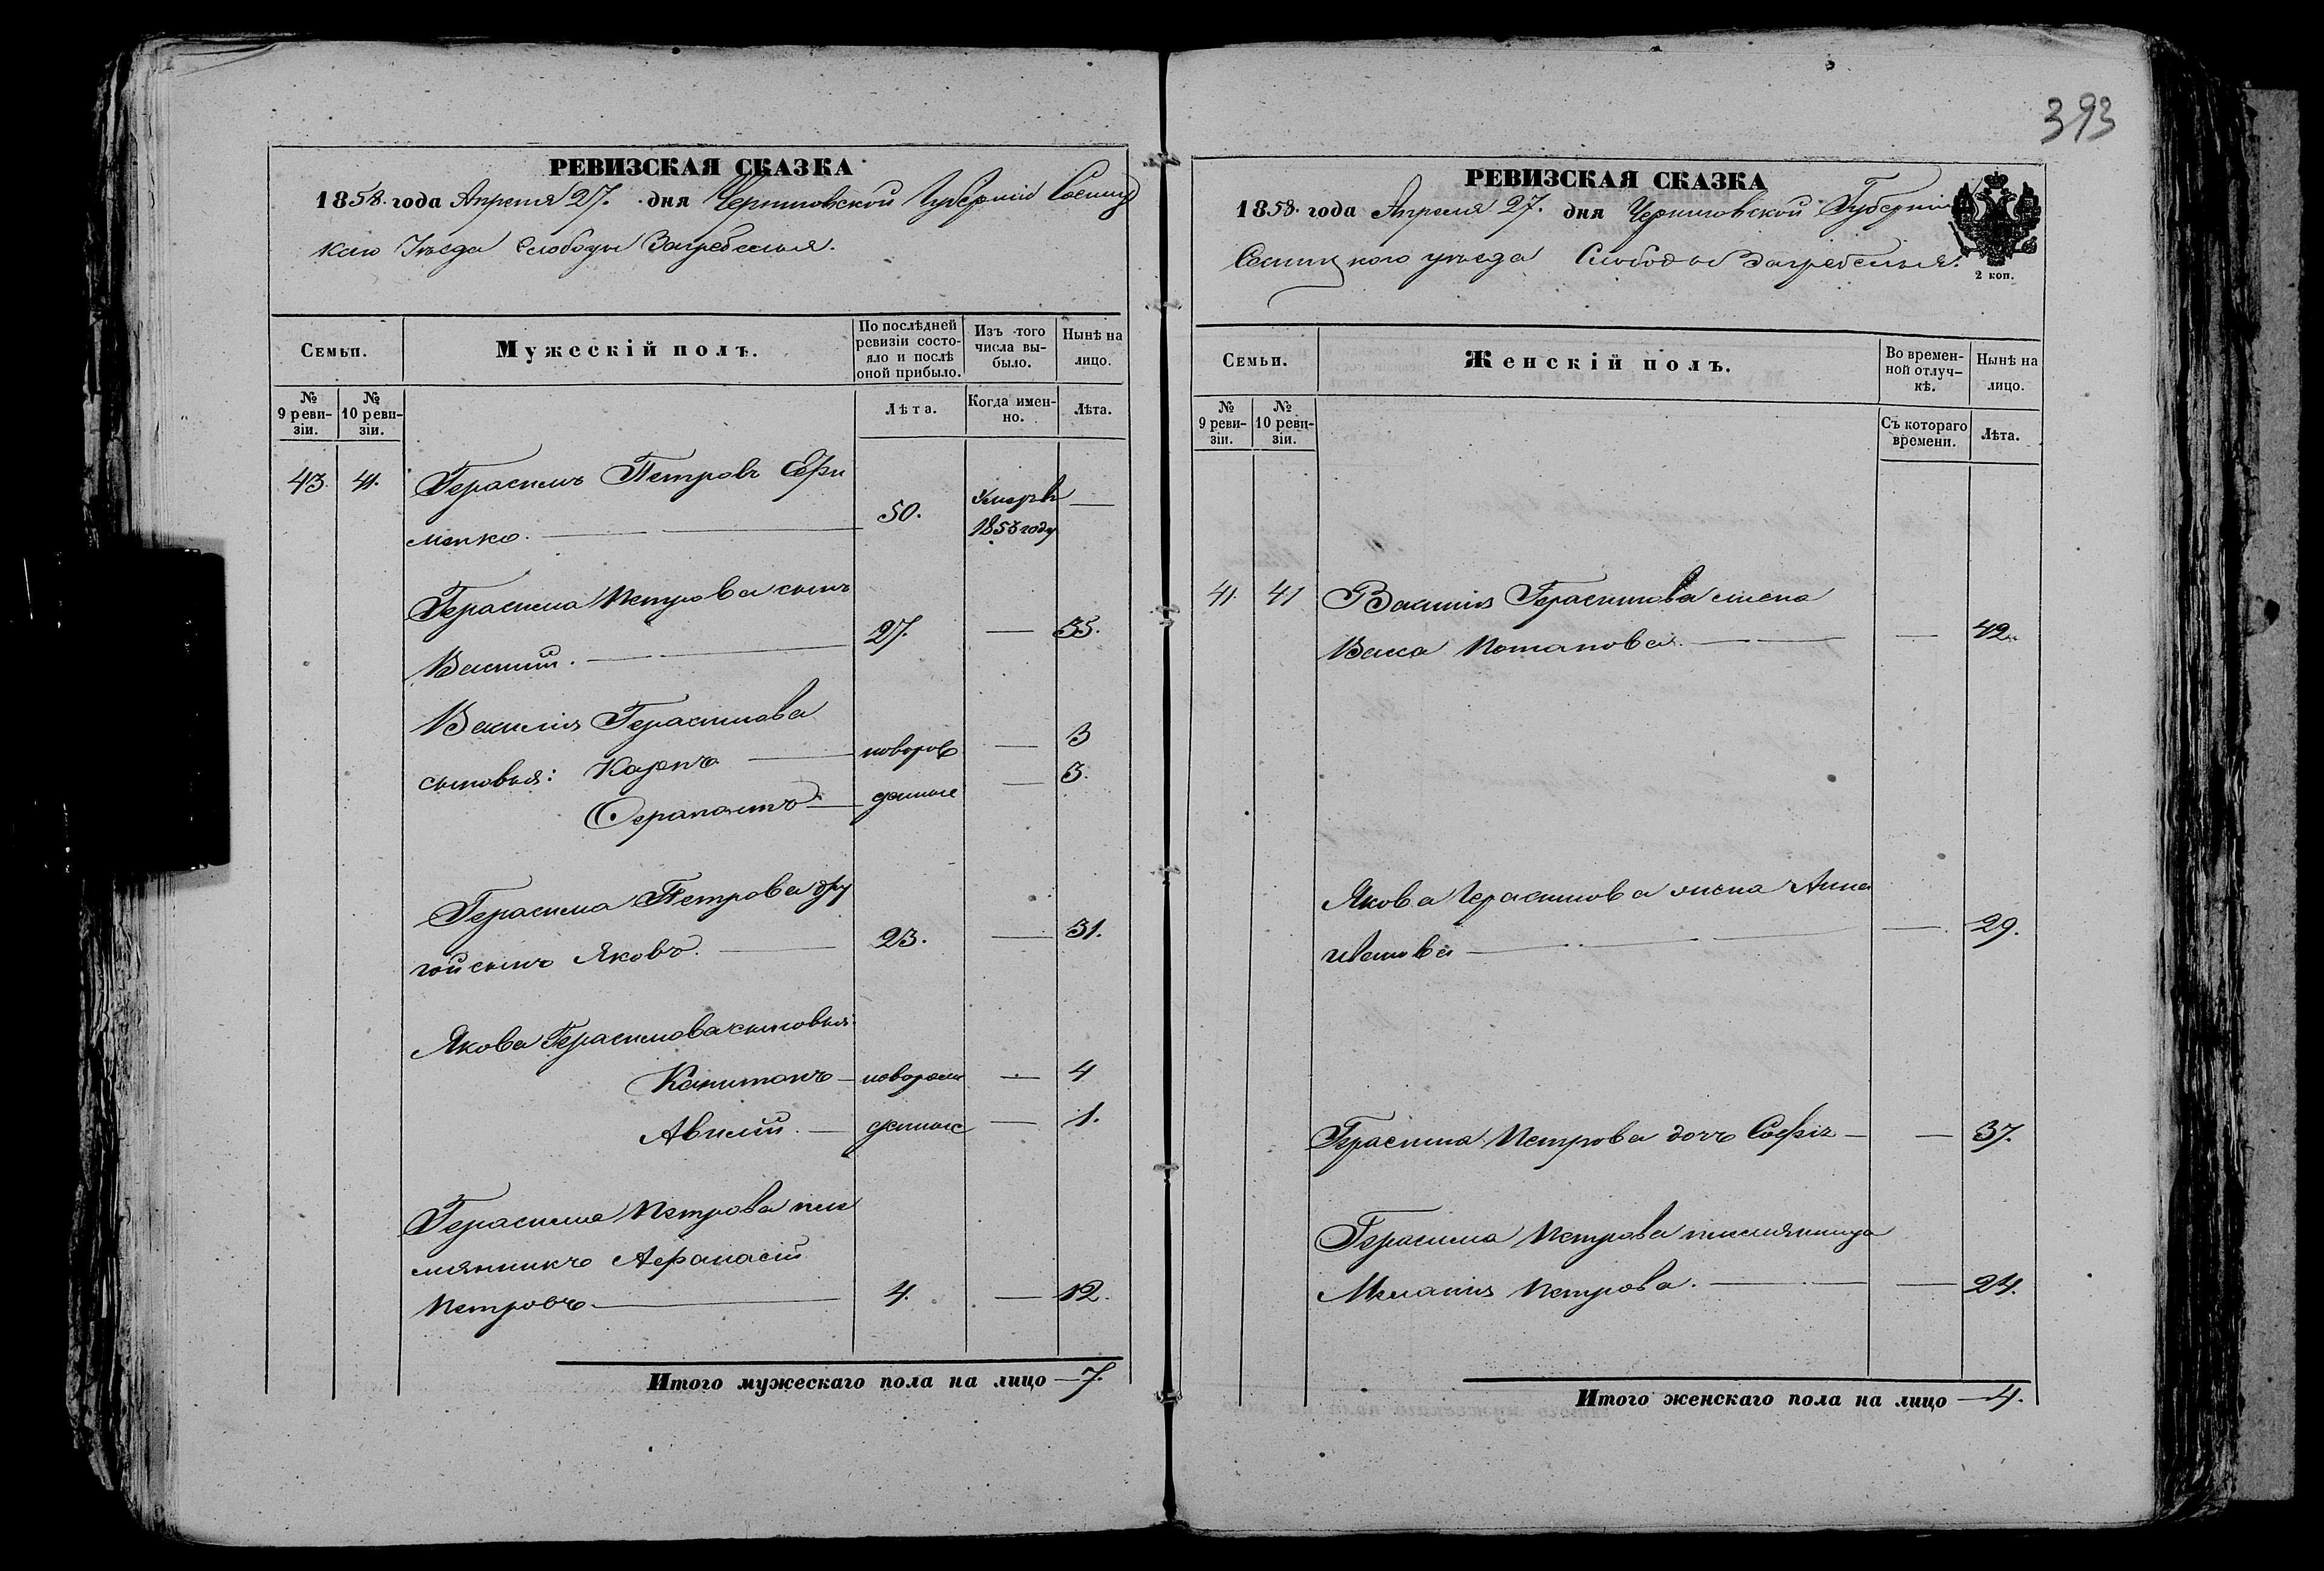 393
РЕВИЗСКАЯ СКАЗКА
1858. года Апреля 27. дня Черниговской Губерніи Сосниц
каго Уезда Слободы Загребелья.
Семьи.
Мужескій полъ.
По послѣдней ревизіи состояло и послѣ оной прибыло.
Изъ того числа выбыло.
Нынѣ на лицо.
№ 9 ревизіи.
№ 10 ревизіи.
Лѣта.
Когда именно.
Лѣта.
43. 41. Герасимъ Петровъ
менко. 50. Умеръ в 1858 году
Герасима Петрова сынъ
Василій. 27. 35.
Василія Герасимова
сыновья: Карпъ новорож 3
Ферапонтъ денные 3.
Герасима Петрова дру
гой сынъ Яковъ. 23. 31.
Якова Герасимова сыновья
Капитонъ новорож 4
Авилій. денные 1.
Герасима Петрова пле
мянникъ Афанасій
Петровъ. 4. 12.
Итого мужескаго пола на лицо 7.
РЕВИЗСКАЯ СКАЗКА
1858. года Апреля 27. дня Черниговской Губерніи
Сосницкого уезда Слободы Загребелья.
2 коп.
Семьи.
Женскій полъ.
Во временной отлучкѣ.
Нынѣ на лицо.
№ 9 ревизіи.
№ 10 ревизіи.
Съ котораго времени.
Лѣта.
41. 41 Василія Герасимова жена
Васса Потапова. 42.
Якова Герасимова жена Анна
Иванова 29.
Герасима Петрова дочь Софія 37.
Герасима Петрова племянница
Меланія Петрова. 24.
Итого женскаго пола на лицо 4.